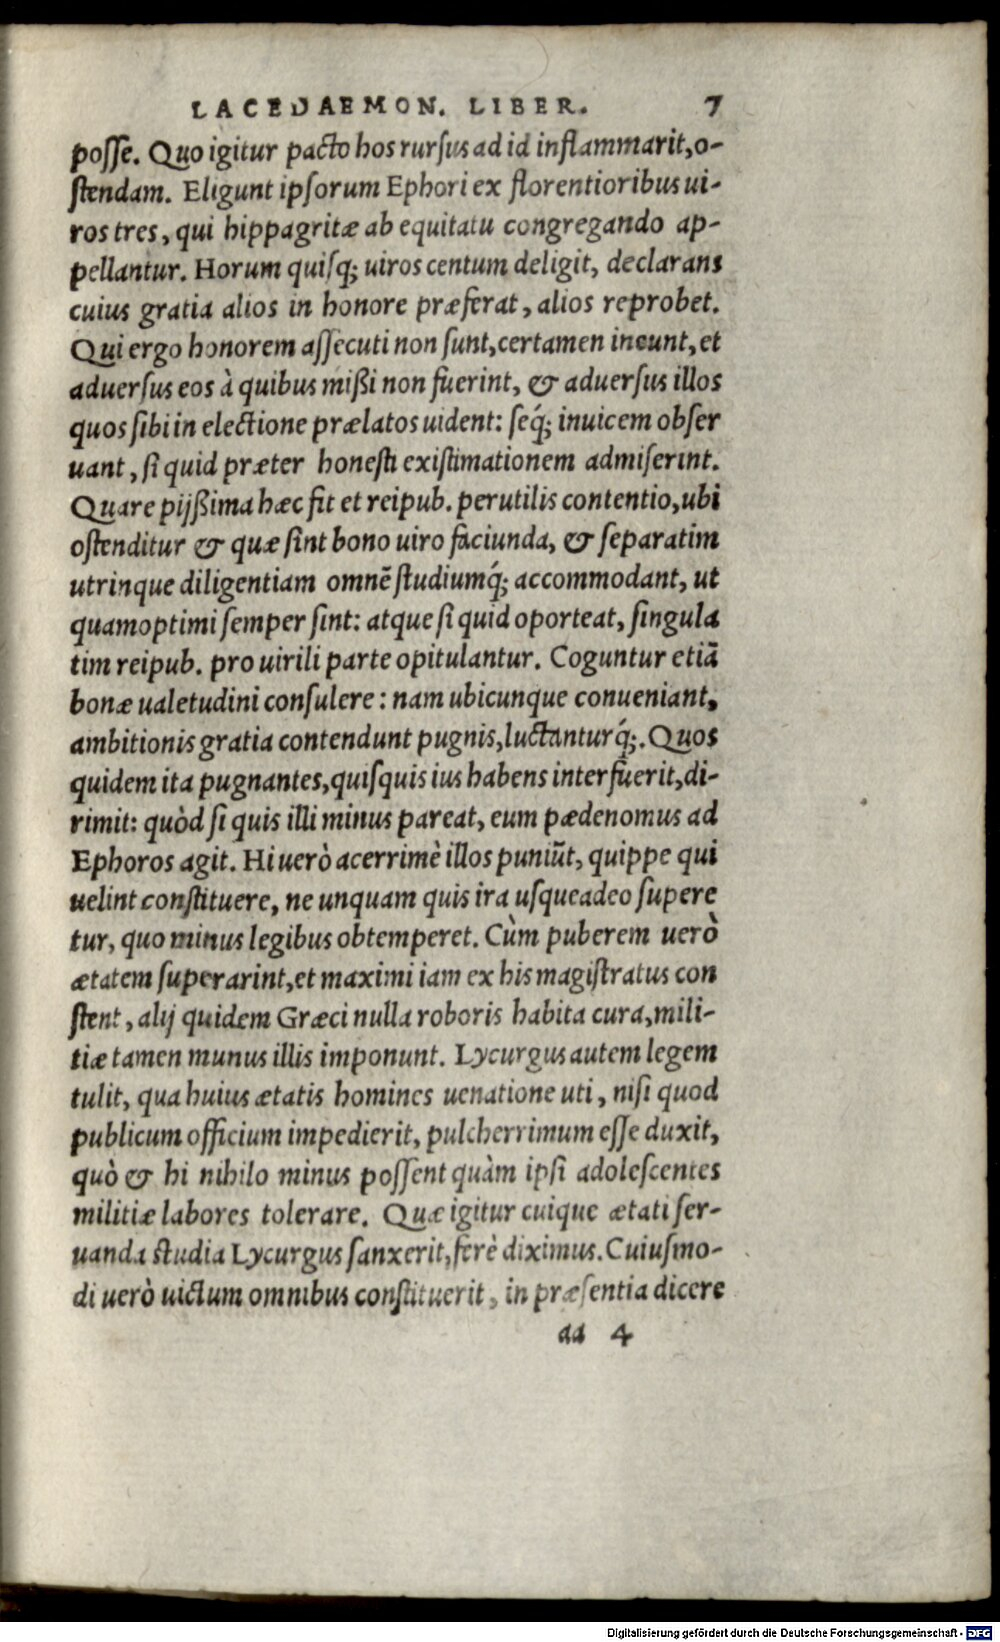 LACEDAEMON. LIBER. 7
posse. Quo igitur pacto hos rursus ad id inflammarit, o-
stendam. Eligunt ipsorum Ephori ex florentioribus ui-
ros tres, qui hippagritæ ab equitatu congregando ap-
pellantur. Horum quisq; uiros centum deligit, declarans
cuius gratia alios in honore præferat, alios reprobet.
Qui ergo honorem assecuti non sunt, certamen ineunt, et
aduersus eos à quibus mißi non fuerint, & aduersus illos
quos sibi in electione prælatos uident: seq́; inuicem obser
uant, si quid præter honesti existimationem admiserint.
Quare pijßima hæc fit et reipub. perutilis contentio, ubi
ostenditur & quæ sint bono uiro faciunda, & separatim
utrinque diligentiam omnē studiumq́; accommodant, ut
quamoptimi semper sint: atque si quid oporteat, singula
tim reipub. pro uirili parte opitulantur. Coguntur etiā
bonæ ualetudini consulere: nam ubicunque conueniant,
ambitionis gratia contendunt pugnis, luctanturq́;. Quos
quidem ita pugnantes, quisquis ius habens interfuerit, di-
rimit: quòd si quis illi minus pareat, eum pædenomus ad
Ephoros agit. Hi uerò acerrimè illos puniūt, quippe qui
uelint constituere, ne unquam quis ira usqueadeo supere
tur, quo minus legibus obtemperet. Cùm puberem uerò
ætatem superarint, et maximi iam ex his magistratus con
stent, alij quidem Græci nulla roboris habita cura, mili-
tiæ tamen munus illis imponunt. Lycurgus autem legem
tulit, qua huius ætatis homines uenatione uti, nisi quod
publicum officium impedierit, pulcherrimum esse duxit,
quò & hi nihilo minus possent quàm ipsi adolescentes
militiæ labores tolerare. Quæ igitur cuique ætati ser-
uanda studia Lycurgus sanxerit, ferè diximus. Cuiusmo-
di uerò uictum omnibus constituerit, in præsentia dicere
aa 4
Digitalisierung gefördert durch die Deutsche Forschungsgemeinschaft - DFG